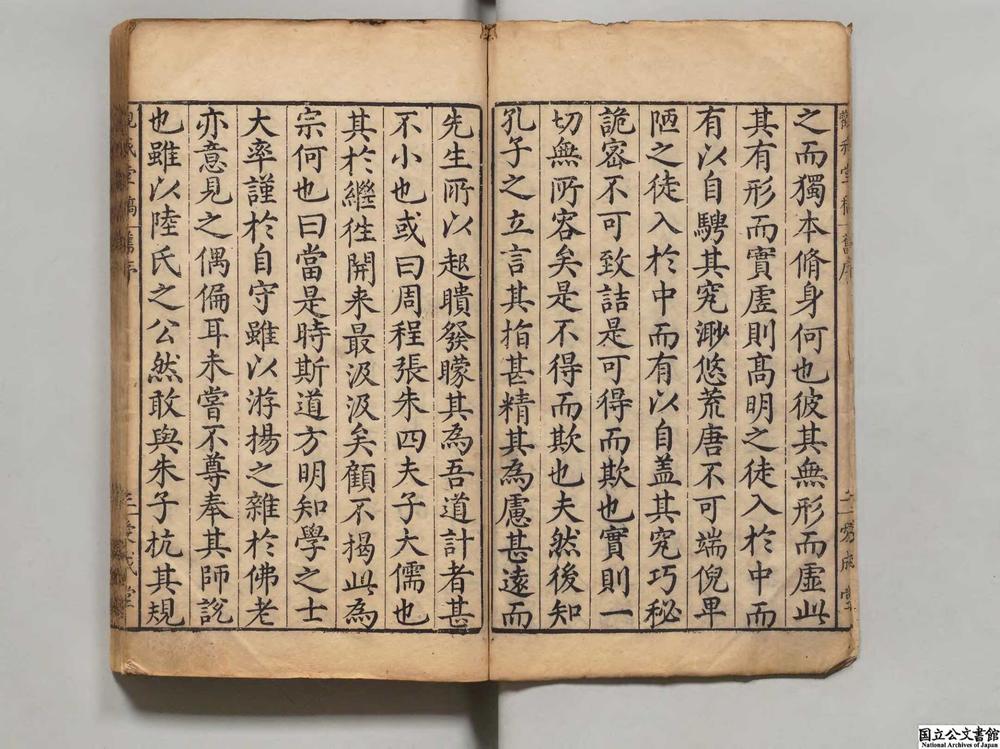 之而獨本脩身何也彼其無形而虛此
其有形而實虛則髙明之徒入於中而
有以自騁其究渺悠荒唐不可端倪卑
陋之徒入於中而有以自盖其究巧秘
詭宻不可致詰是可得而欺也實則一
切無所容矣是不得而欺也夫然後知
孔子之立言其指甚精其為慮甚遠而
先生所以起聵發矇其為吾道計者甚
不小也或曰周程張朱四夫子大儒也
其於繼徃開来最汲汲矣顧不揭此為
宗何也曰當是時斯道方明知學之士
大率謹於自守雖以游楊之雜於佛老
亦意見之偶偏耳未嘗不尊奉其師說
也雖以陸氏之公然敢與朱子抗其規
国立公文書館
National Archives of Japan